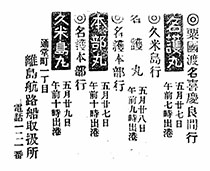 ◎粟國渡名喜慶良間行
名護丸
五月廿七日
午前七時出港
◎久米島行
名護丸
五月廿八日
◎名護本部行
本部丸
五月廿七日
午前十時出港
◎名護本部行
久米島丸
五月廿九日
午前十時出港
通堂町一丁目
離島航路船取扱所
電話一二一番